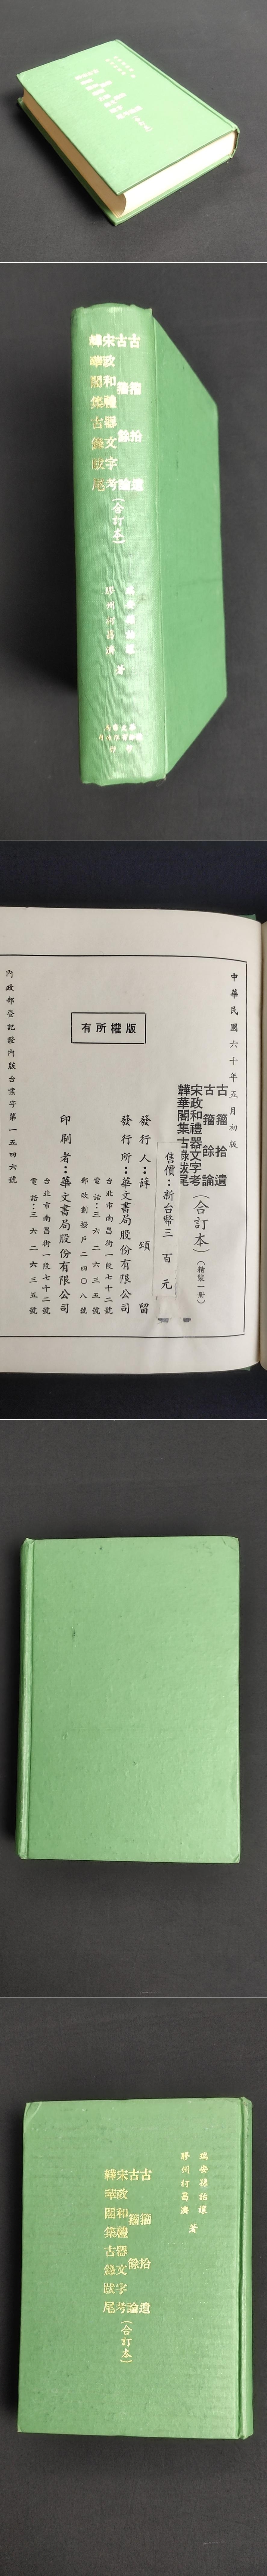 古籀拾遺
古籀餘論
宋政和禮器文字考
韡華閣集古錄跋尾
(合訂本)
瑞安孫詒讓
膠州柯昌濟
著
中華民國六十年五月初版
古籀拾遺
古籀餘論
宋政和禮器文字考
韡華閣集古錄跋尾
(合訂本)
(精裝一册)
售價:新台幣三百元
發行人:薛頌留
發行所:華文書局股份有限公司
台北市南昌街一段七十二號
電話:三六二六三五號
郵政劃撥戶二四〇八號
印刷者:華文書局股份有限公司
台北市南昌街一段七十二號
電話:三六二六三五號
內政部登記證內版台業字第一五四六號
版權所有
瑞安孫詒讓
膠州柯昌濟
著
古籀拾遺
古籀餘論
宋政和禮器文字考
韡華閣集古錄跋尾
(合訂本)